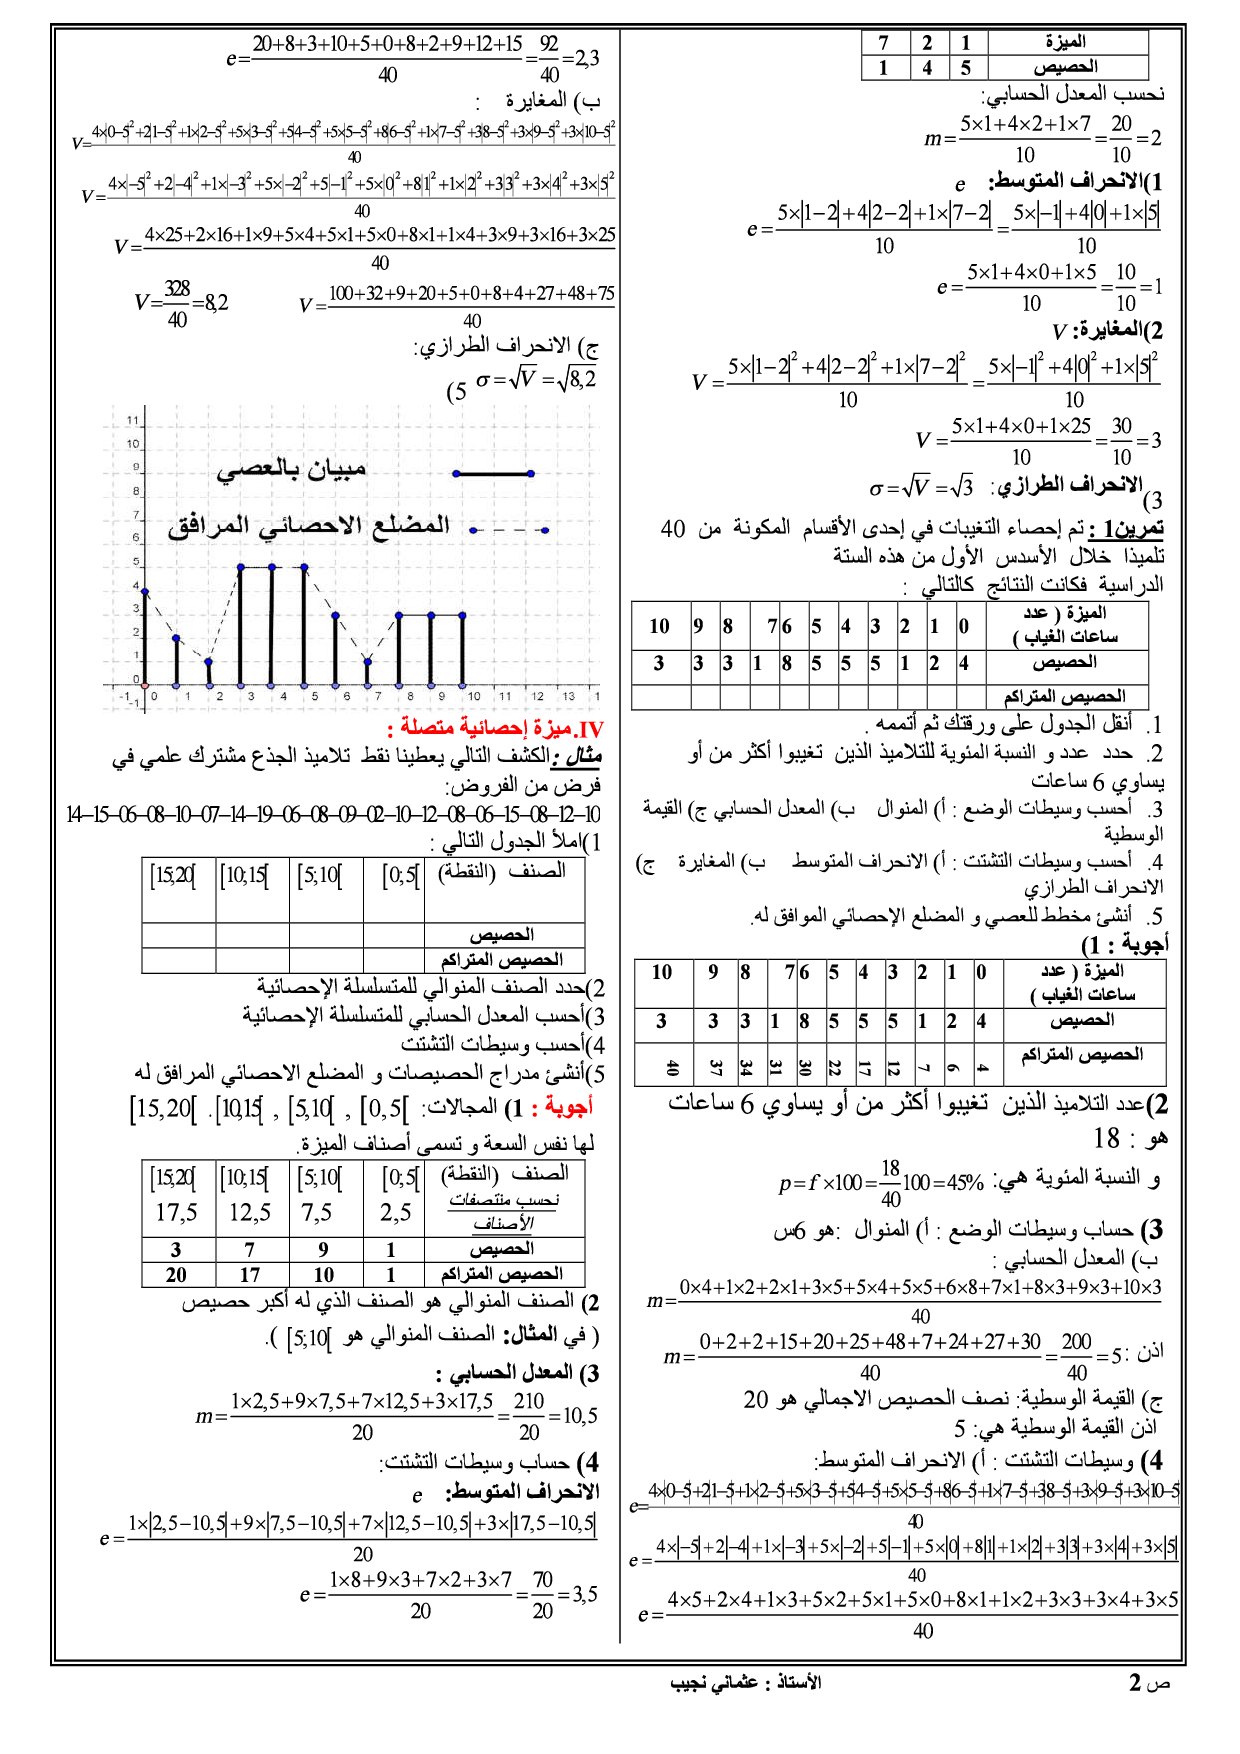 الميزة 1 2 7
الحصيص 5 4 1
نحسب المعدل الحسابي:
m = (5×1+4×2+1×7)/10 = 20/10 = 2
1)الانحراف المتوسط: e
e = (5×|1−2|+4|2−2|+1×|7−2|)/10 = (5×|−1|+4|0|+1×|5|)/10
e = (5×1+4×0+1×5)/10 = 10/10 = 1
2)المغايرة: V
V = (5×|1−2|²+4|2−2|²+1×|7−2|²)/10 = (5×|−1|²+4|0|²+1×|5|²)/10
V = (5×1+4×0+1×25)/10 = 30/10 = 3
3)الانحراف الطرازي: σ = √V = √3
تمرين1 : تم إحصاء التغيبات في إحدى الأقسام المكونة من 40
تلميذا خلال الأسدس الأول من هذه الستة
الدراسية فكانت النتائج كالتالي :
الميزة ( عدد ساعات الغياب ) 0 1 2 3 4 5 6 7 8 9 10
الحصيص 4 2 1 5 5 5 8 1 3 3 3
الحصيص المتراكم
1. أنقل الجدول على ورقتك ثم أتممه .
2. حدد عدد و النسبة المئوية للتلاميذ الذين تغيبوا أكثر من أو
يساوي 6 ساعات
3. أحسب وسيطات الوضع : أ) المنوال ب) المعدل الحسابي ج) القيمة
الوسطية
4. أحسب وسيطات التشتت : أ) الانحراف المتوسط ب) المغايرة ج)
الانحراف الطرازي
5. أنشئ مخطط للعصي و المضلع الإحصائي الموافق له.
أجوبة : 1)
الميزة ( عدد ساعات الغياب ) 0 1 2 3 4 5 6 7 8 9 10
الحصيص 4 2 1 5 5 5 8 1 3 3 3
الحصيص المتراكم 4 6 7 12 17 22 30 31 34 37 40
2)عدد التلاميذ الذين تغيبوا أكثر من أو يساوي 6 ساعات
هو : 18
و النسبة المئوية هي: p = f ×100 = 18/40 100 = 45%
3) حساب وسيطات الوضع : أ) المنوال :هو 6س
ب) المعدل الحسابي :
m = (0×4+1×2+2×1+3×5+5×4+5×5+6×8+7×1+8×3+9×3+10×3)/40
اذن : m = (0+2+2+15+20+25+48+7+24+27+30)/40 = 200/40 = 5
ج) القيمة الوسطية: نصف الحصيص الاجمالي هو 20
اذن القيمة الوسطية هي: 5
4) وسيطات التشتت : أ) الانحراف المتوسط:
e = (4×|0−5|+2|1−5|+1×|2−5|+5×|3−5|+5|4−5|+5×|5−5|+8|6−5|+1×|7−5|+3|8−5|+3×|9−5|+3×|10−5|)/40
e = (4×|−5|+2|−4|+1×|−3|+5×|−2|+5|−1|+5×|0|+8|1|+1×|2|+3|3|+3×|4|+3×|5|)/40
e = (4×5+2×4+1×3+5×2+5×1+5×0+8×1+1×2+3×3+3×4+3×5)/40
e = (20+8+3+10+5+0+8+2+9+12+15)/40 = 92/40 = 2,3
ب) المغايرة :
V = (4×|0−5|²+2|1−5|²+1×|2−5|²+5×|3−5|²+5|4−5|²+5×|5−5|²+8|6−5|²+1×|7−5|²+3|8−5|²+3×|9−5|²+3×|10−5|²)/40
V = (4×|−5|²+2|−4|²+1×|−3|²+5×|−2|²+5|−1|²+5×|0|²+8|1|²+1×|2|²+3|3|²+3×|4|²+3×|5|²)/40
V = (4×25+2×16+1×9+5×4+5×1+5×0+8×1+1×4+3×9+3×16+3×25)/40
V = (100+32+9+20+5+0+8+4+27+48+75)/40 V = 328/40 = 8,2
ج) الانحراف الطرازي:
σ = √V = √8,2 5)
11
10
9
8
7
6
5
4
3
2
1
0
-1
مبيان بالعصي
المضلع الاحصائي المرافق
-1 0 1 2 3 4 5 6 7 8 9 10 11 12 13 1
IV.ميزة إحصائية متصلة :
مثال :الكشف التالي يعطينا نقط تلاميذ الجذع مشترك علمي في
فرض من الفروض:
14–15–06–08–10–07–14–19–06–08–09–02–10–12–08–06–15–08–12–10
1)املأ الجدول التالي :
الصنف (النقطة) [0;5[ [5;10[ [10;15[ [15;20[
الحصيص
الحصيص المتراكم
2)حدد الصنف المنوالي للمتسلسلة الإحصائية
3)أحسب المعدل الحسابي للمتسلسلة الإحصائية
4)أحسب وسيطات التشتت
5)أنشئ مدراج الحصيصات و المضلع الاحصائي المرافق له
أجوبة : 1) المجالات: [0,5[ , [5,10[ , [10,15[ . [15,20[
لها نفس السعة و تسمى أصناف الميزة.
الصنف (النقطة) [0;5[ [5;10[ [10;15[ [15;20[
نحسب منتصفات الأصناف 2,5 7,5 12,5 17,5
الحصيص 1 9 7 3
الحصيص المتراكم 1 10 17 20
2) الصنف المنوالي هو الصنف الذي له أكبر حصيص
( في المثال: الصنف المنوالي هو [5;10[ ).
3) المعدل الحسابي :
m = (1×2,5+9×7,5+7×12,5+3×17,5)/20 = 210/20 = 10,5
4) حساب وسيطات التشتت:
الانحراف المتوسط: e
e = (1×|2,5−10,5|+9×|7,5−10,5|+7×|12,5−10,5|+3×|17,5−10,5|)/20
e = (1×8+9×3+7×2+3×7)/20 = 70/20 = 3,5
ص 2 الأستاذ : عثماني نجيب